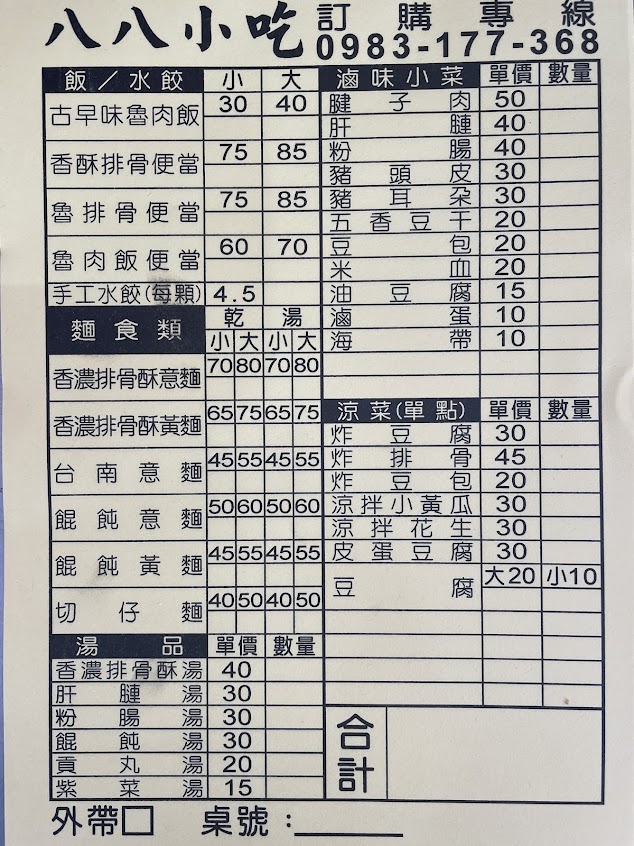 八八小吃
訂購專線
0983-177-368
飯／水餃 小 大
古早味魯肉飯 30 40
香酥排骨便當 75 85
魯排骨便當 75 85
魯肉飯便當 60 70
手工水餃(每顆) 4.5
麵食類 乾 湯
小 大 小 大
香濃排骨酥意麵 70 80 70 80
香濃排骨酥黃麵 65 75 65 75
台南意麵 45 55 45 55
餛飩意麵 50 60 50 60
餛飩黃麵 45 55 45 55
切仔麵 40 50 40 50
湯品 單價 數量
香濃排骨酥湯 40
肝腱湯 30
粉腸湯 30
餛飩湯 30
貢丸湯 20
紫菜湯 15
滷味小菜 單價 數量
腱子肉 50
肝腱 40
粉腸 40
豬頭皮 30
豬耳朵 30
五香豆干 20
豆包 20
米血 20
油豆腐 15
滷蛋 10
海帶 10
涼菜(單點) 單價 數量
炸豆腐 30
炸排骨 45
炸豆包 20
涼拌小黃瓜 30
涼拌花生 30
皮蛋豆腐 30
豆腐 大20 小10
合計
外帶□ 桌號：______